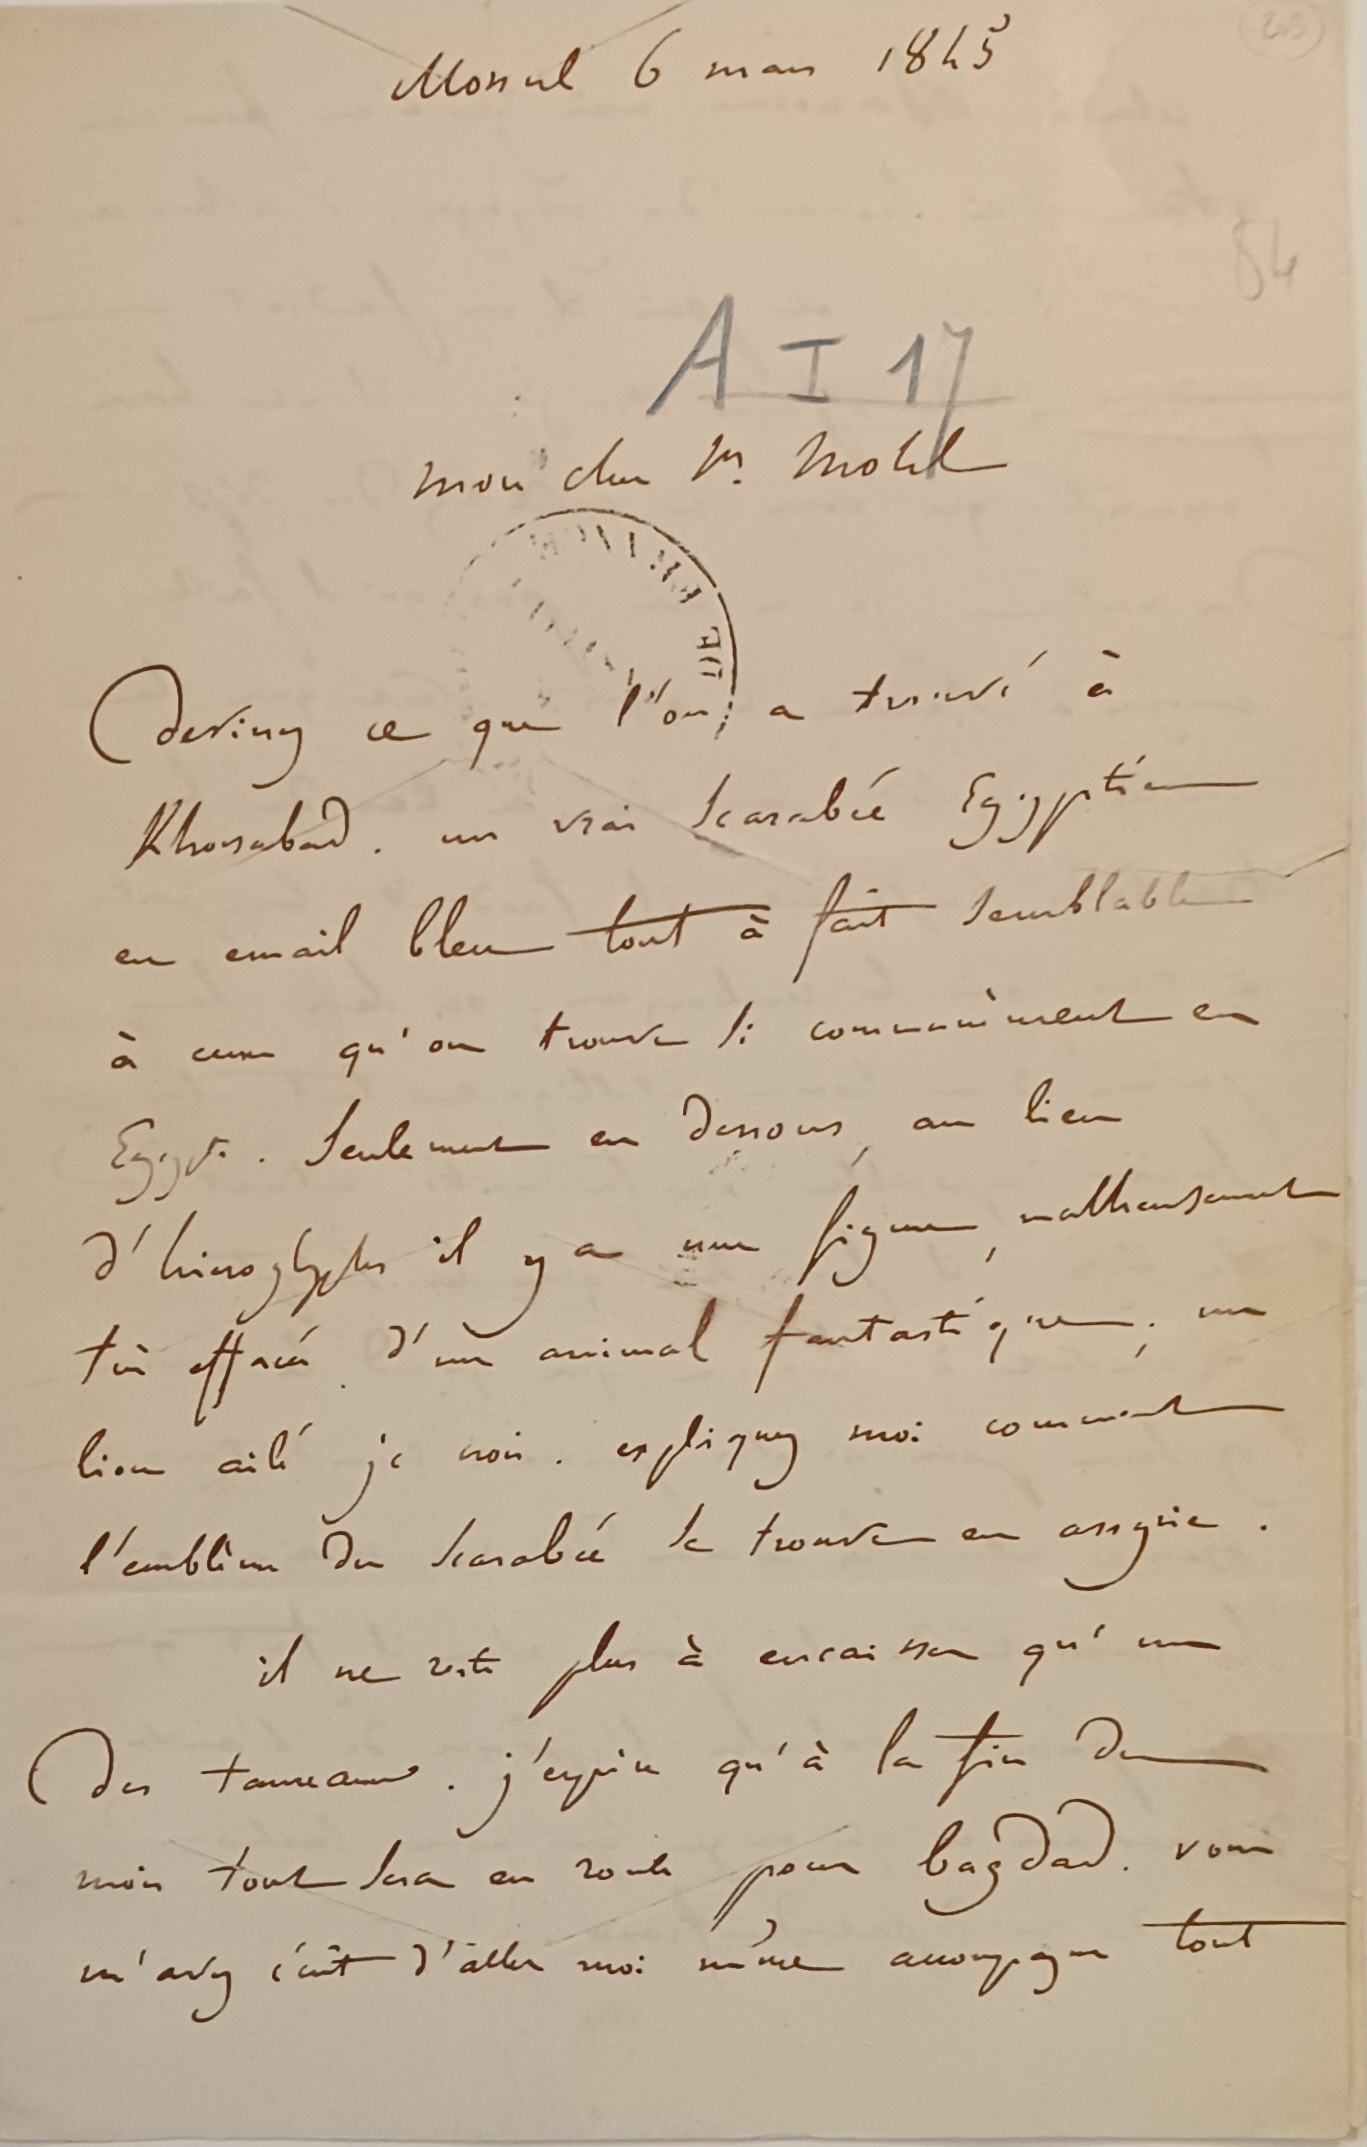 203
Mossul 6 mars 1845
84
A I 17
mon cher Mr. Mohl
INSTITUT DE FRANCE
devinez ce que l'on a trouvé à
Khorsabad. un vrai scarabée Egyptien
en email bleu tout à fait semblable
à ceux qu'on trouve si communèment en
Egypte. seulement en dessous, au lieu
d'hieroglyphes il y a une figure, malheureusement
très effacée d'un animal fantastique, un
lion ailé je crois. expliquez moi comment
l'emblème du scarabée se trouve en assyrie.
il ne reste plus à encaisser qu'un
des taureaux. j'espère qu'à la fin du
mois tout sera en route pour bagdad. vous
m'avez écrit d'aller moi même accompagner tout